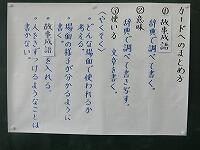 カードへのまとめ方
①故事成語
辞典で調べて書く。
②意味
辞典で調べて書き写す。
③使い方
文章を書く。
〈やくそく〉
・どんな場面で使われるか
考える。
・場面の様子が分かるように
書く。
・故事成語を入れる。
・人をきずつけるようなことは
書かない。